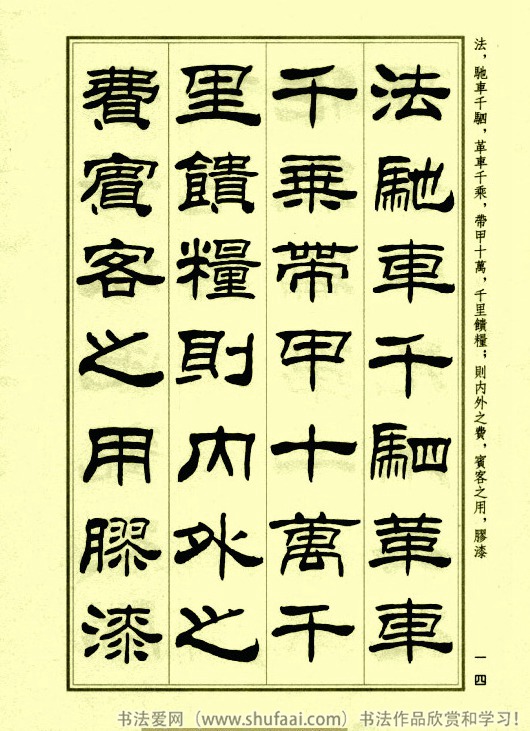 法馳車千駟革車
千乗帶甲十萬千
里饋糧則內外之
費賓客之用膠漆
法，馳車千駟，革車千乘，帶甲十萬，千里饋糧；則内外之費，賓客之用，膠漆
一四
书法爱网（www.shufaai.com）书法作品欣赏和学习！